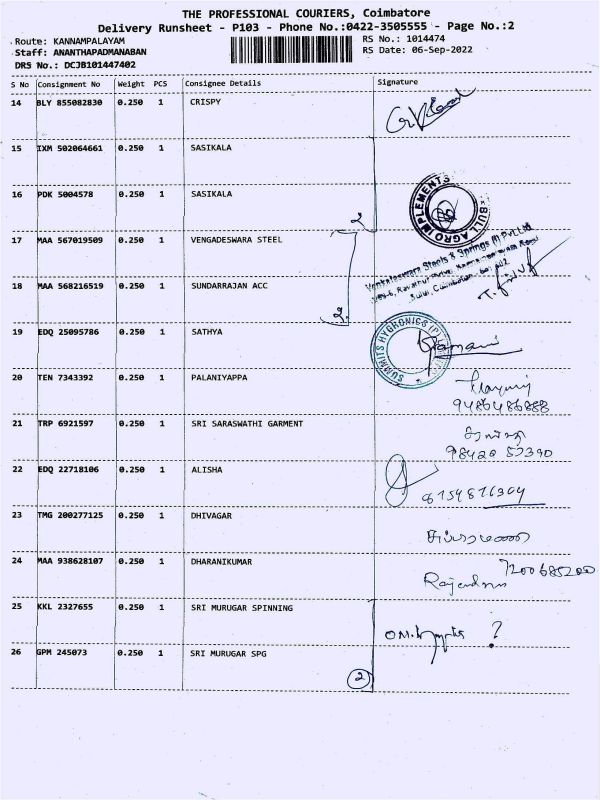 THE PROFESSIONAL COURIERS, Coimbatore
Delivery Runsheet - P103 - Phone No.:0422-3505555 - Page No.:2
Route: KANNAMPALAYAM
RS No.: 1014474
Staff: ANANTHAPADMANABAN
RS Date: 06-Sep-2022
DRS No.: DCJB101447402
S No Consignment No Weight PCS Consignee Details Signature
14 BLY 855082830 0.250 1 CRISPY
15 IXM 502064661 0.250 1 SASIKALA
16 PDK 5004578 0.250 1 SASIKALA
BULL AGRO IMPLEMENTS
2
17 MAA 567019509 0.250 1 VENGADESWARA STEEL
Venkateswara Steels & Springs (I) Pvt Ltd
18 MAA 568216519 0.250 1 SUNDARRAJAN ACC
2
19 EDQ 25095786 0.250 1 SATHYA
SUMMITS HYGRONICS (P)
20 TEN 7343392 0.250 1 PALANIYAPPA
9486486888
21 TRP 6921597 0.250 1 SRI SARASWATHI GARMENT
22 EDQ 22718106 0.250 1 ALISHA
23 TMG 200277125 0.250 1 DHIVAGAR
24 MAA 938628107 0.250 1 DHARANIKUMAR
7200685200
Rajendran
25 KKL 2327655 0.250 1 SRI MURUGAR SPINNING
?
26 GPM 245073 0.250 1 SRI MURUGAR SPG
2